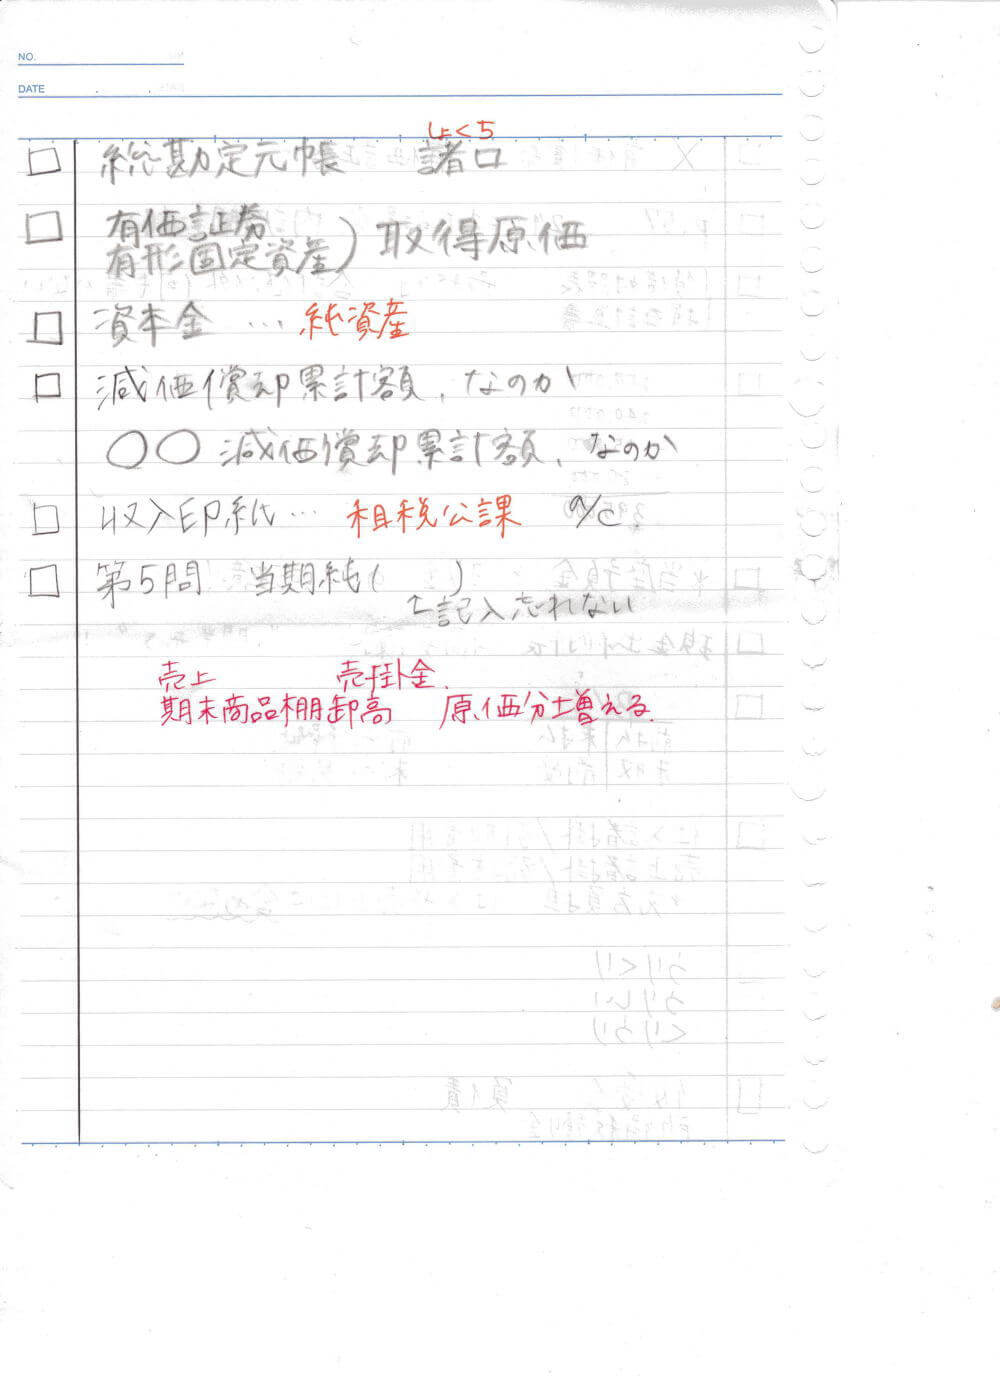 NO.
DATE
しょくち
□ 総勘定元帳 諸口
□ 有価証券
有形固定資産) 取得原価
□ 資本金 … 純資産
□ 減価償却累計額、なのか
〇〇減価償却累計額、なのか
□ 収入印紙… 租税公課 a/c
□ 第5問 当期純( )
↑記入忘れない
売上 売掛金
期末商品棚卸高 原価分増える